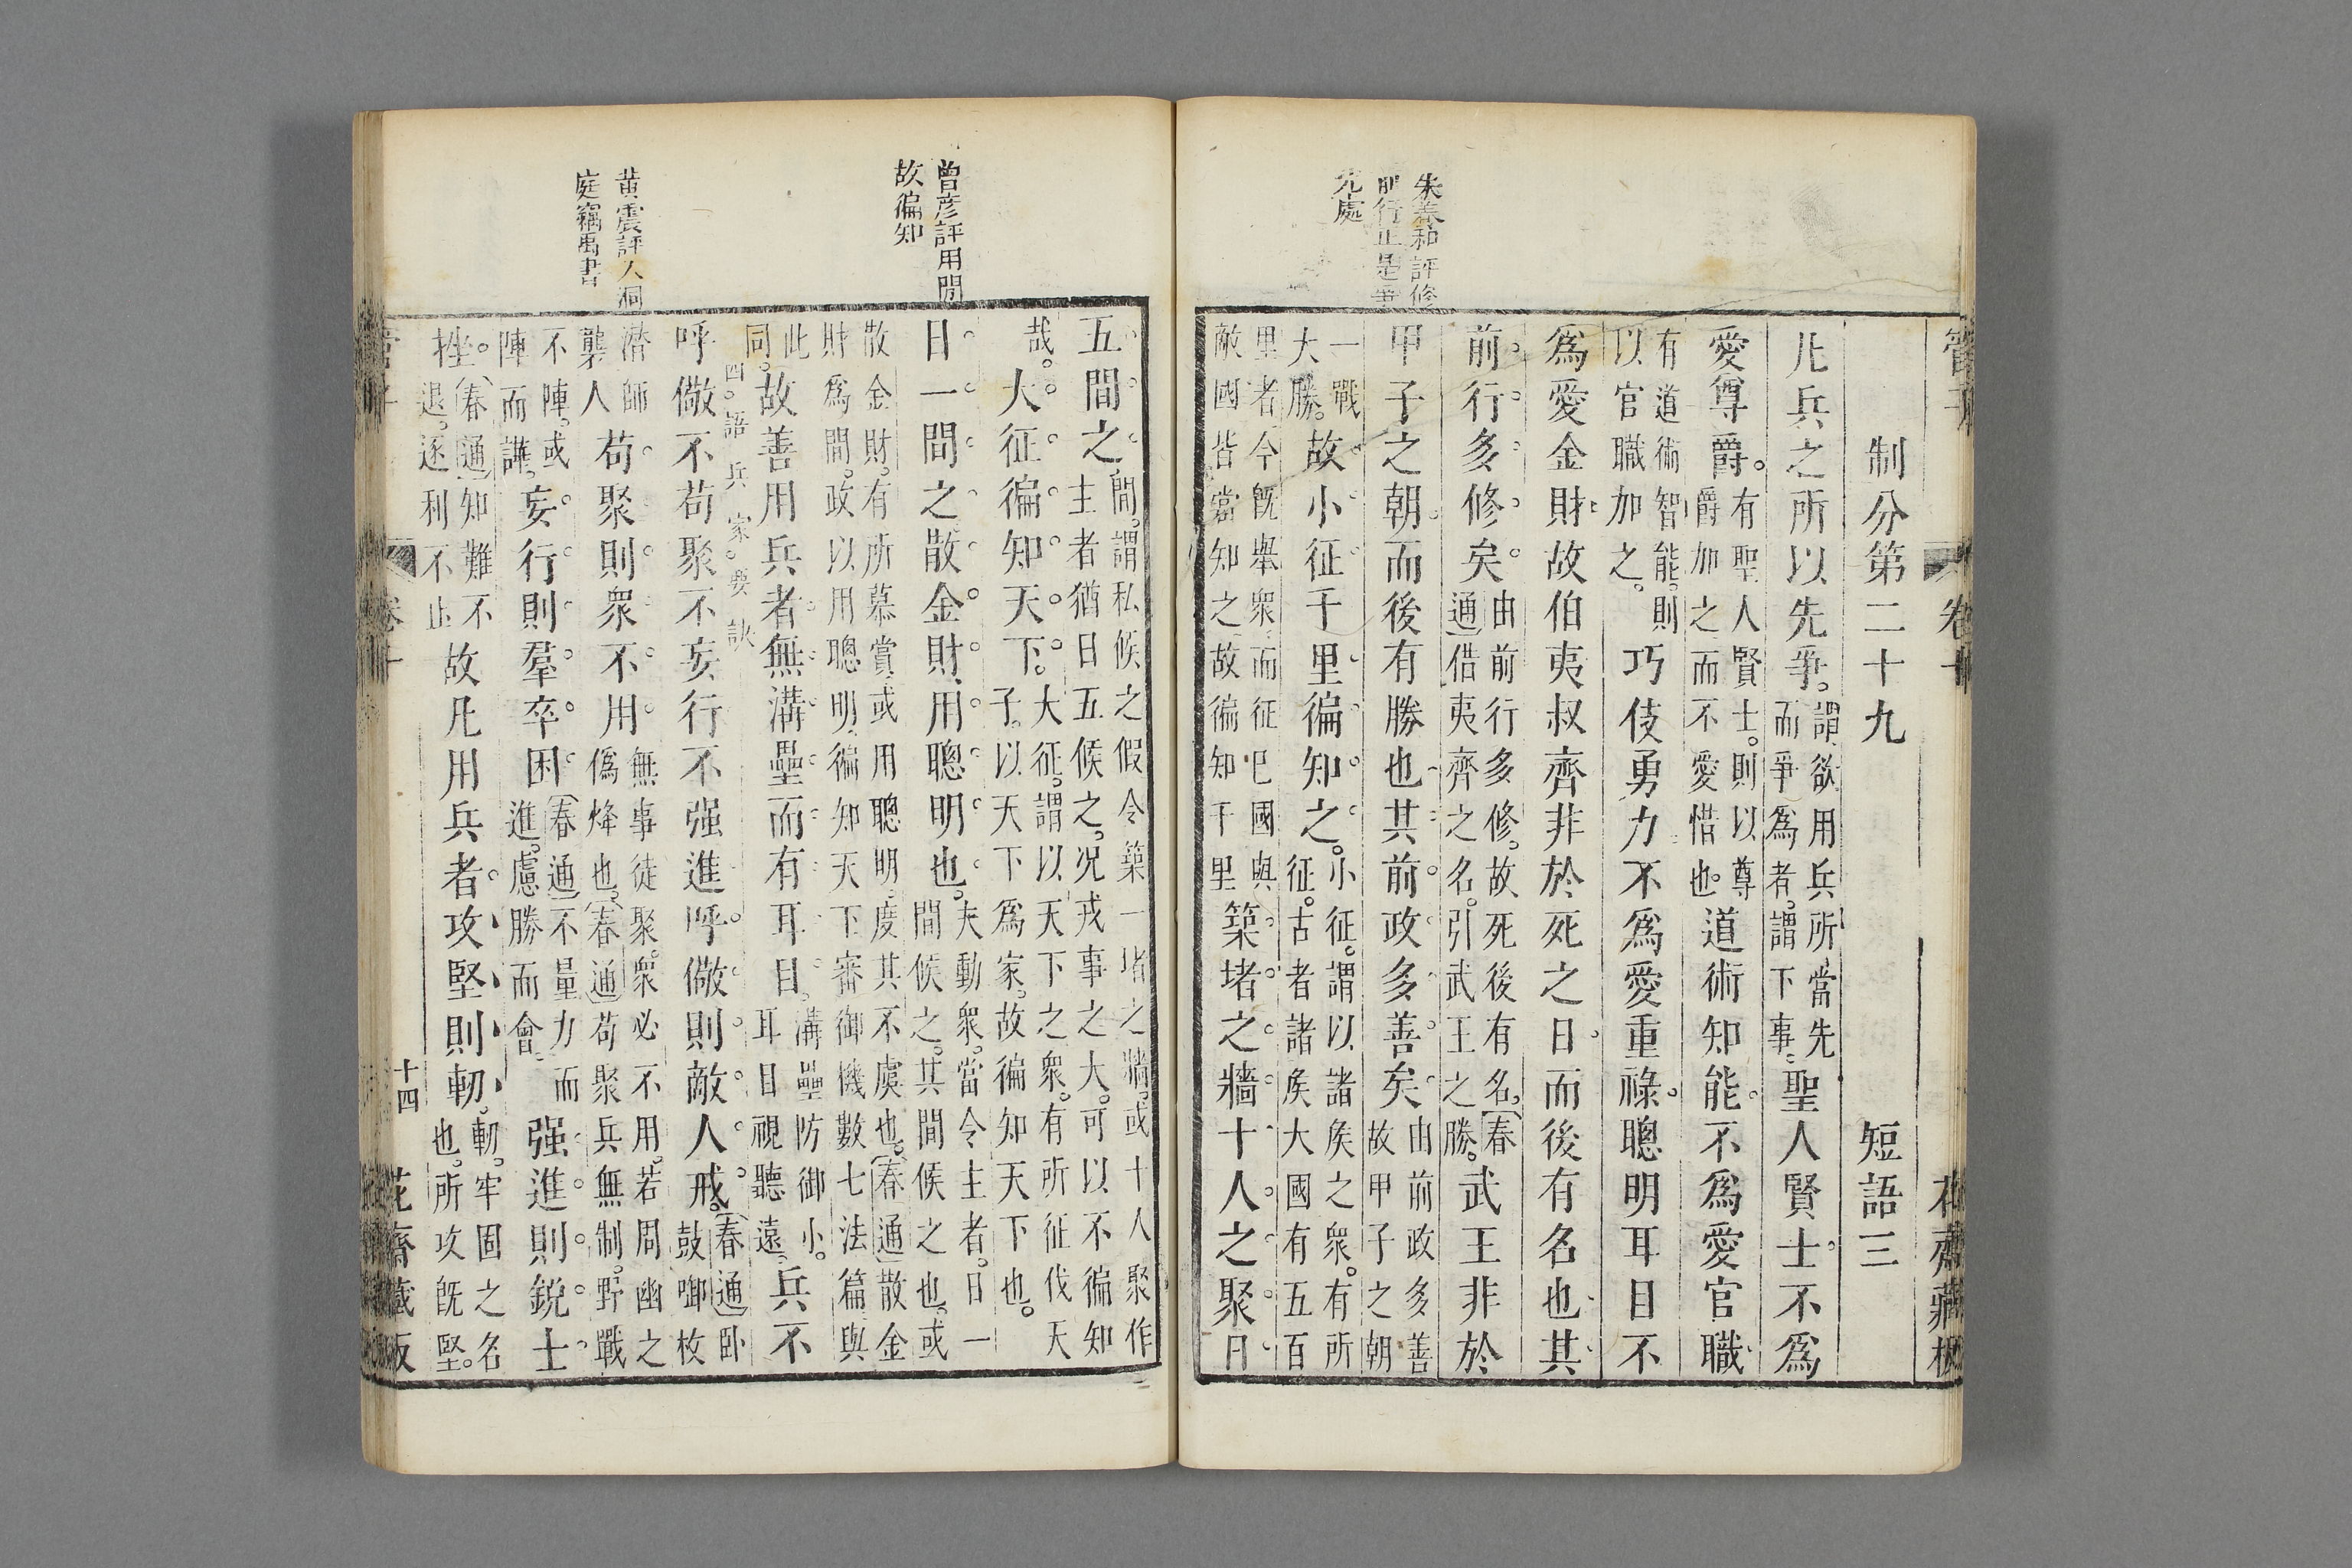 朱養和評修
前行正是爭
先處
管子
卷十
花齋藏板
制分第二十九
短語三
凡兵之所以先爭。謂欲用兵所當先而爭為者。謂下事。聖人賢士。不為
愛尊爵。有聖人賢士。則以尊爵加之而不愛惜也。道術知能。不為愛官職
有道術智能。則以官職加之。巧伎勇力不為愛重祿。聰明耳目不
為愛金財。故伯夷叔齊非於死之日。而後有名也。其
前行多修矣。由前行多修。故死後有名。(春通)借夷齊之名。引武王之勝。武王非於
甲子之朝。而後有勝也。其前政多善矣。由前政多善故甲子之朝
一戰大勝。故小征千里徧知之。小征。謂以諸侯之衆。有所征。古者諸侯大國有五百
里者今旣舉衆而征巳國與敵國皆當知之故徧知千里築堵之牆十人之聚日
曾彥評用間
故徧知
黃震評人洞
庭竊禹書
五間之。間。謂私候之假令築一堵之牆。或十人聚作主者猶日五候之。况戎事之大。可以不徧知
哉。大征徧知天下。大征。謂以天下之衆。有所征伐天子。以天下為家。故徧知天下也。
日一間之。散金財。用聰明也。夫動衆。當令主者。日一間候之。其間候之也。或
散金財。有所慕賞。或用聰明。度其不虞也。(春通)散金財為間。政以用聰明。徧知天下審御機數七法篇與
此同。故善用兵者。無溝壘而有耳目。溝壘防御小。耳目視聽遠。兵不
四。語兵家。要訣
呼儆不苟聚不妄行不强進呼儆則敵人戒。(春通)鼓啣枚臥
潜師襲人苟聚則衆不用。無事徒聚。衆必不用。若周幽之偽烽也。(春通)苟聚兵無制。野戰
不陣。或陣而譁。妄行則羣卒困。(春通)不量力而進。慮勝而會。强進則銳士
挫。(春通)知難不退。逐利不止故凡用兵者。攻堅則軔。軔。牢固之名也。所攻旣堅。
管子
卷十
十四
花齋藏板